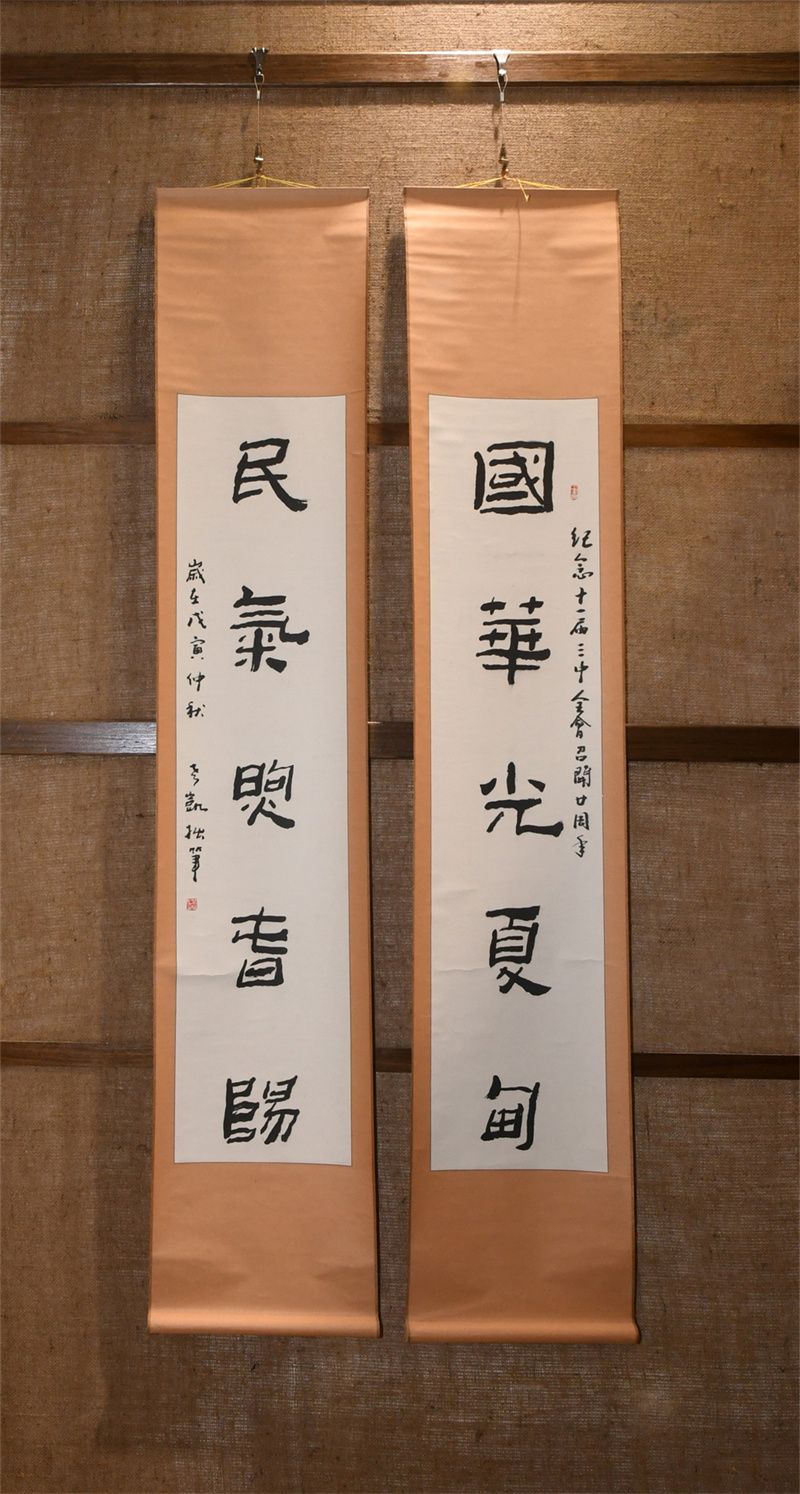 紀念十一届三中全會召開廿周年
國華光夏甸
民氣煦春陽
歲在戊寅仲秋 凱拙筆